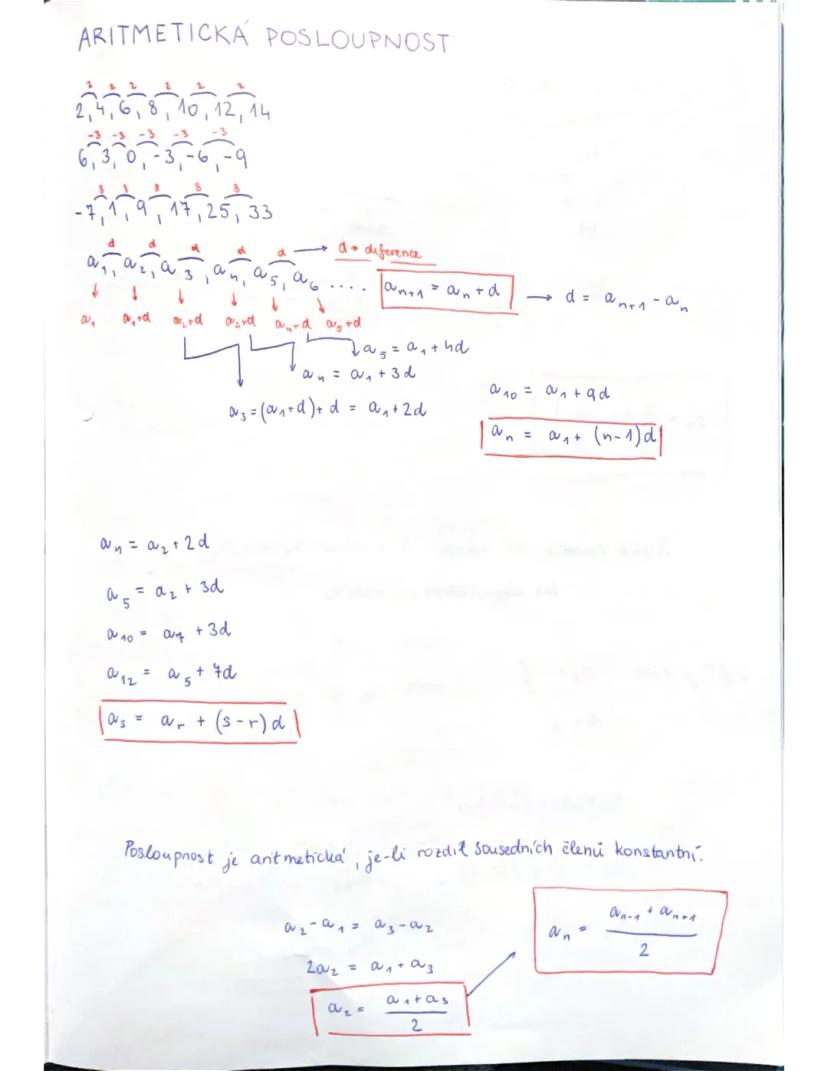 ARITMETICKÁ POSLOUPNOST
2 2 2 2 2 2
2, 4, 6, 8, 10, 12, 14
-3 -3 -3 -3 -3
6, 3, 0, -3, -6, -9
8 8 8 8 8
-7, 1, 9, 17, 25, 33
d d d d d → d → diference
a₁, a₂, a₃, a₄, a₅, a₆ .... aₙ₊₁ = aₙ + d → d = aₙ₊₁ - aₙ
a₁ a₁+d a₂+d a₃+d a₄+d a₅+d
a₅ = a₁ + 4d
a₄ = a₁ + 3d
a₁₀ = a₁ + 9d
a₃ = (a₁+d) + d = a₁ + 2d
aₙ = a₁ + (n-1)d
a₄ = a₂ + 2d
a₅ = a₂ + 3d
a₁₀ = a₇ + 3d
a₁₂ = a₅ + 7d
aₛ = aᵣ + (s-r)d
Posloupnost je aritmetická, je-li rozdíl sousedních členů konstantní.
a₂ - a₁ = a₃ - a₂
aₙ = (aₙ₋₁ + aₙ₊₁)/2
2a₂ = a₁ + a₃
a₂ = (a₁ + a₃)/2